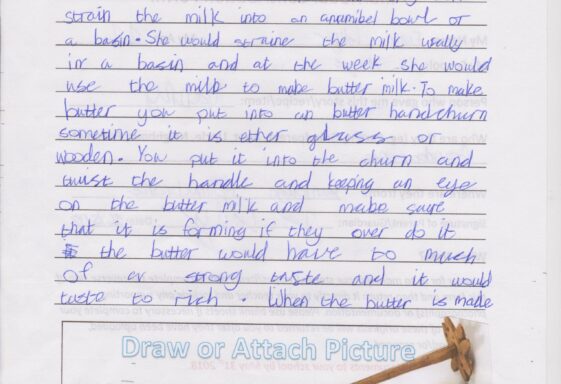 strain the milk into an anamibel bowl or
a basin. She would straine the milk usally
in a basin and at the week she would
use the milb to mabe butter milk. To make
butter you put into an butter handchurn
sometime it is ether glass or
wooden. You put it into the churn and
twist the handle and keeping an eye
on the butter milk and mabe sure
that it is forming if they over do it
the butter would have to much
of er strong taste and it would
taste to rich. When the butter is made
Draw or Attach Picture